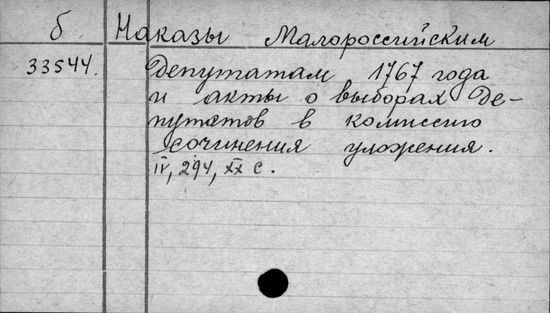 б Наказы Малороссийским
33544. Депутатам 1767 года
и акты о выборах Де-
путатов в комиссию
сочинения уложения.
IV, 294, XX с.